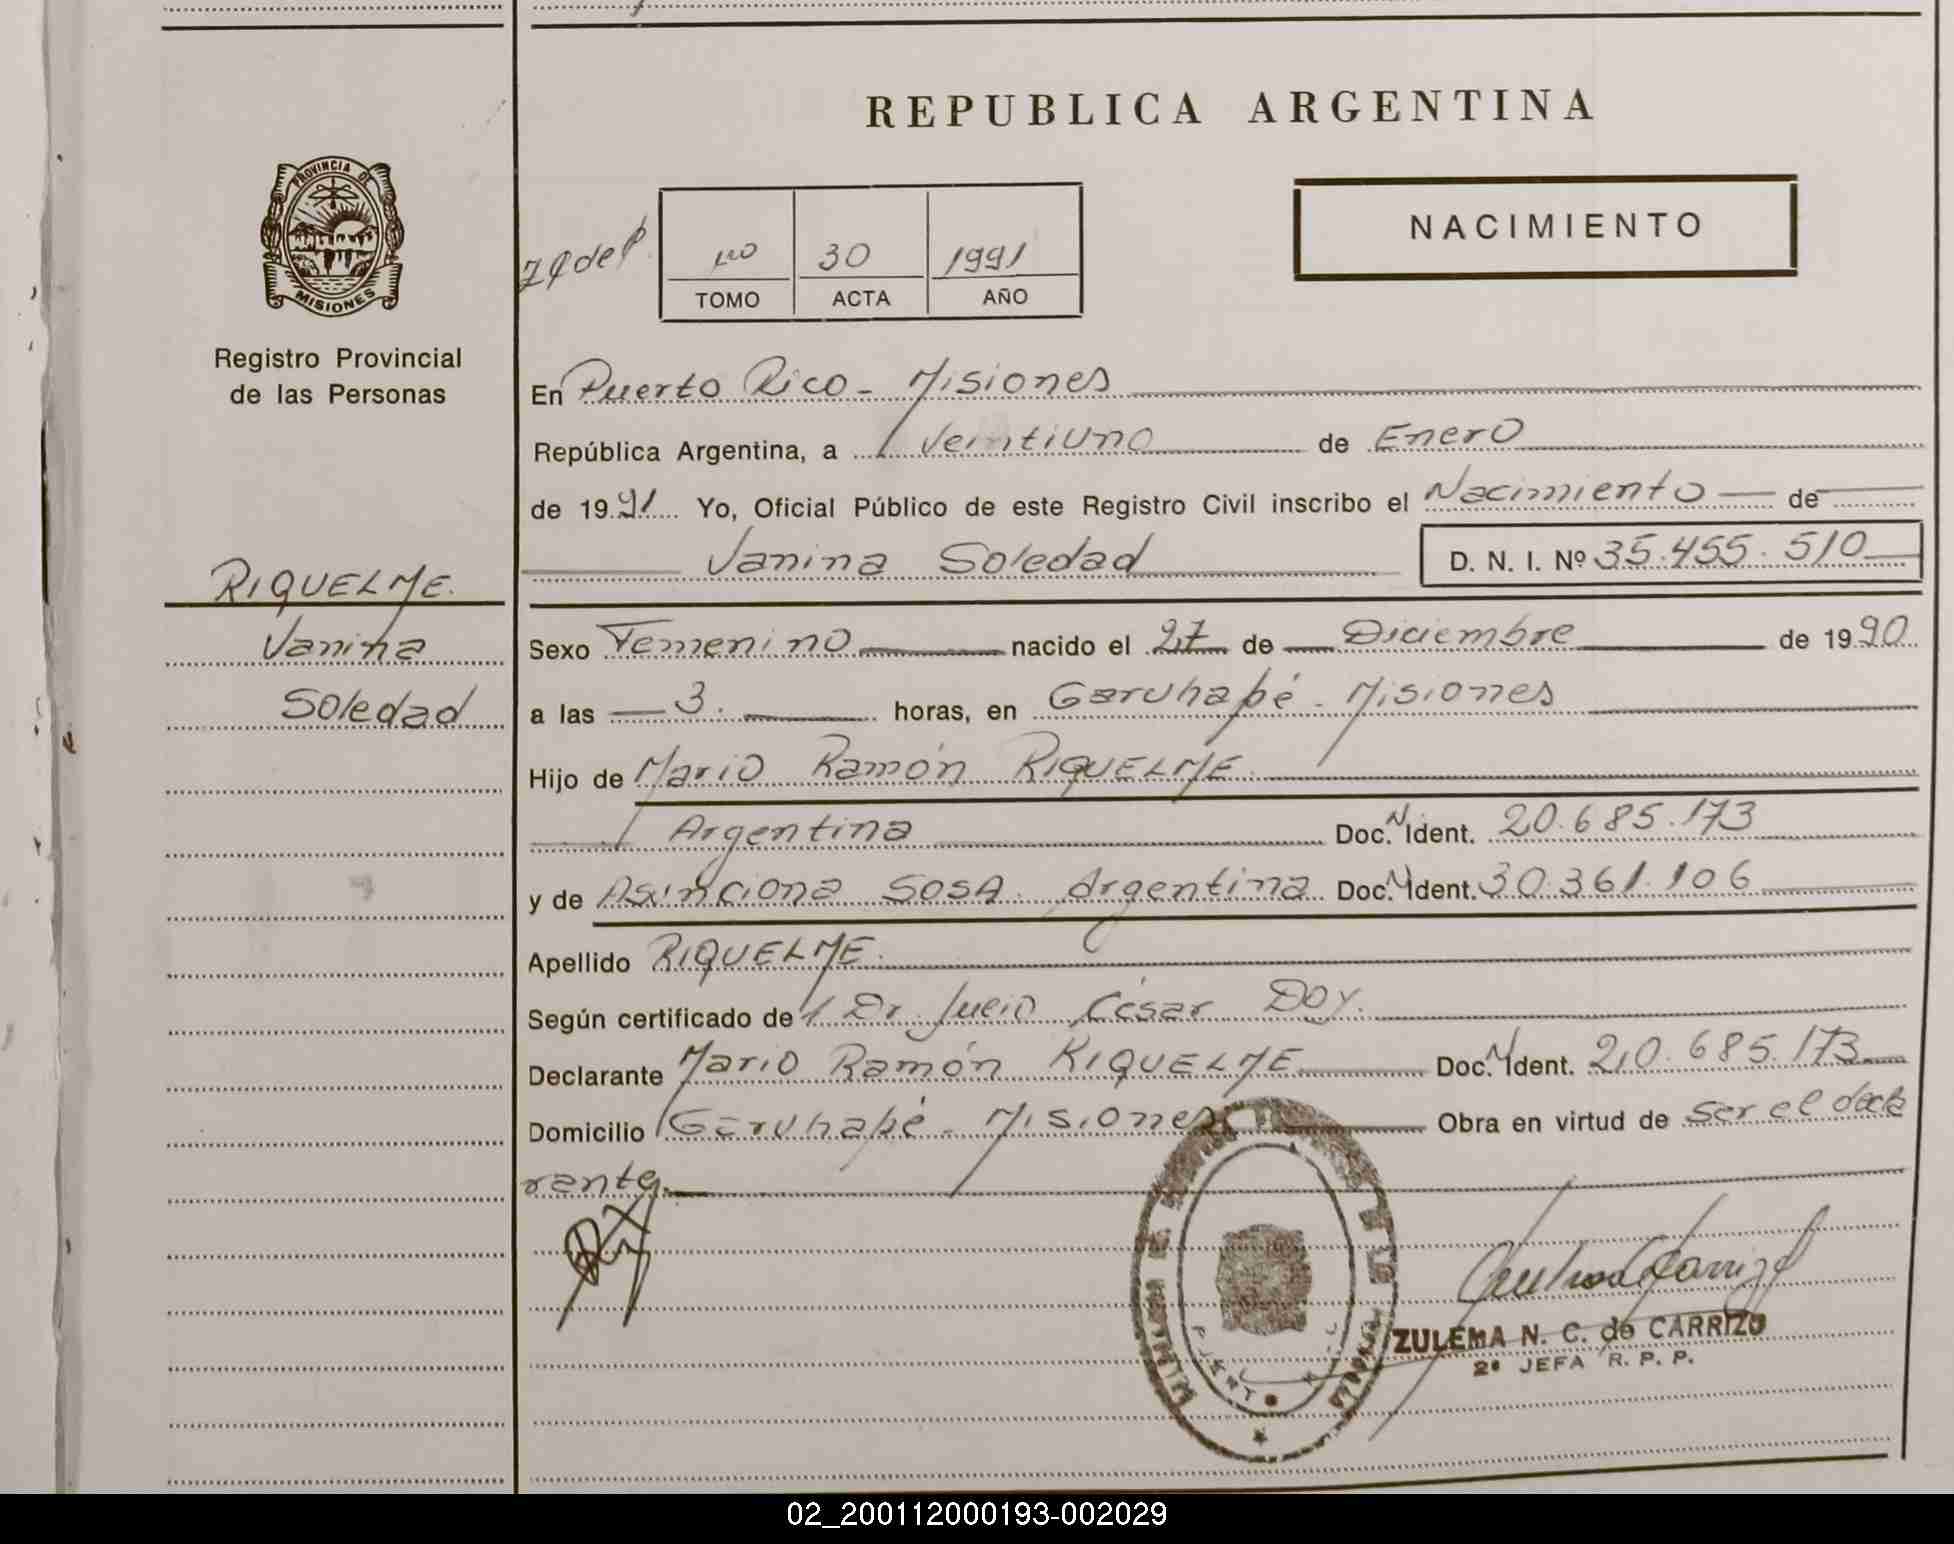 REPUBLICA ARGENTINA
PROVINCIA DE
MISIONES
Registro Provincial
de las Personas
30 1991
TOMO ACTA AÑO
NACIMIENTO
En Puerto Rico - Misiones
República Argentina, a Veintiuno de Enero
de 1991 Yo, Oficial Público de este Registro Civil inscribo el Nacimiento de
Vanina Soledad D. N. I. Nº 35.455.510
RIQUELME.
Vanina
Soledad
Sexo Femenino nacido el 27 de Diciembre de 1990
a las 3. horas, en Garuhapé - Misiones
Hijo de Mario Ramón RIQUELME
Argentina Doc. N Ident. 20.685.173
y de Asunciona SOSA. Argentina Doc. N Ident. 30.361.106
Apellido RIQUELME.
Según certificado de Dr. Julio César Doy.
Declarante Mario Ramón RIQUELME Doc. N Ident. 20.685.173
Domicilio Garuhapé - Misiones Obra en virtud de ser el decla
rante.
ZULEMA N. C. de CARRIZO
2º JEFA R. P. P.
02_200112000193-002029